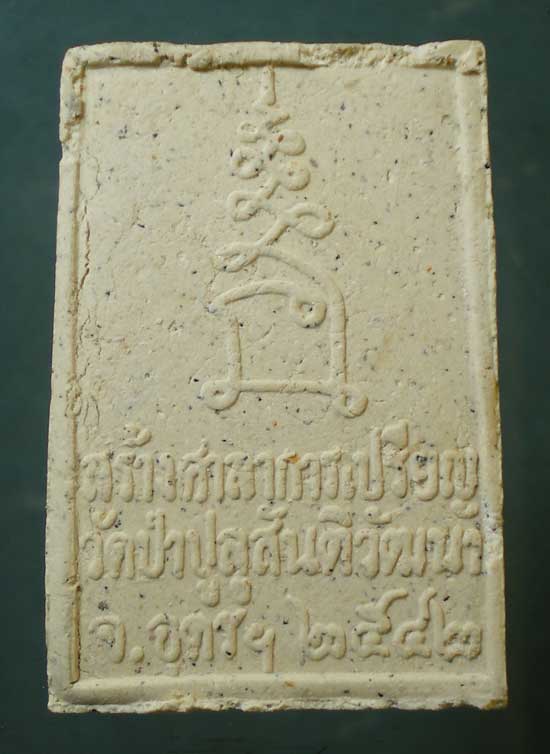 สร้างศาลาการเปรียญ
วัดป่าปูลูสันติวัฒนา
จ.อุดรฯ ๒๕๔๒